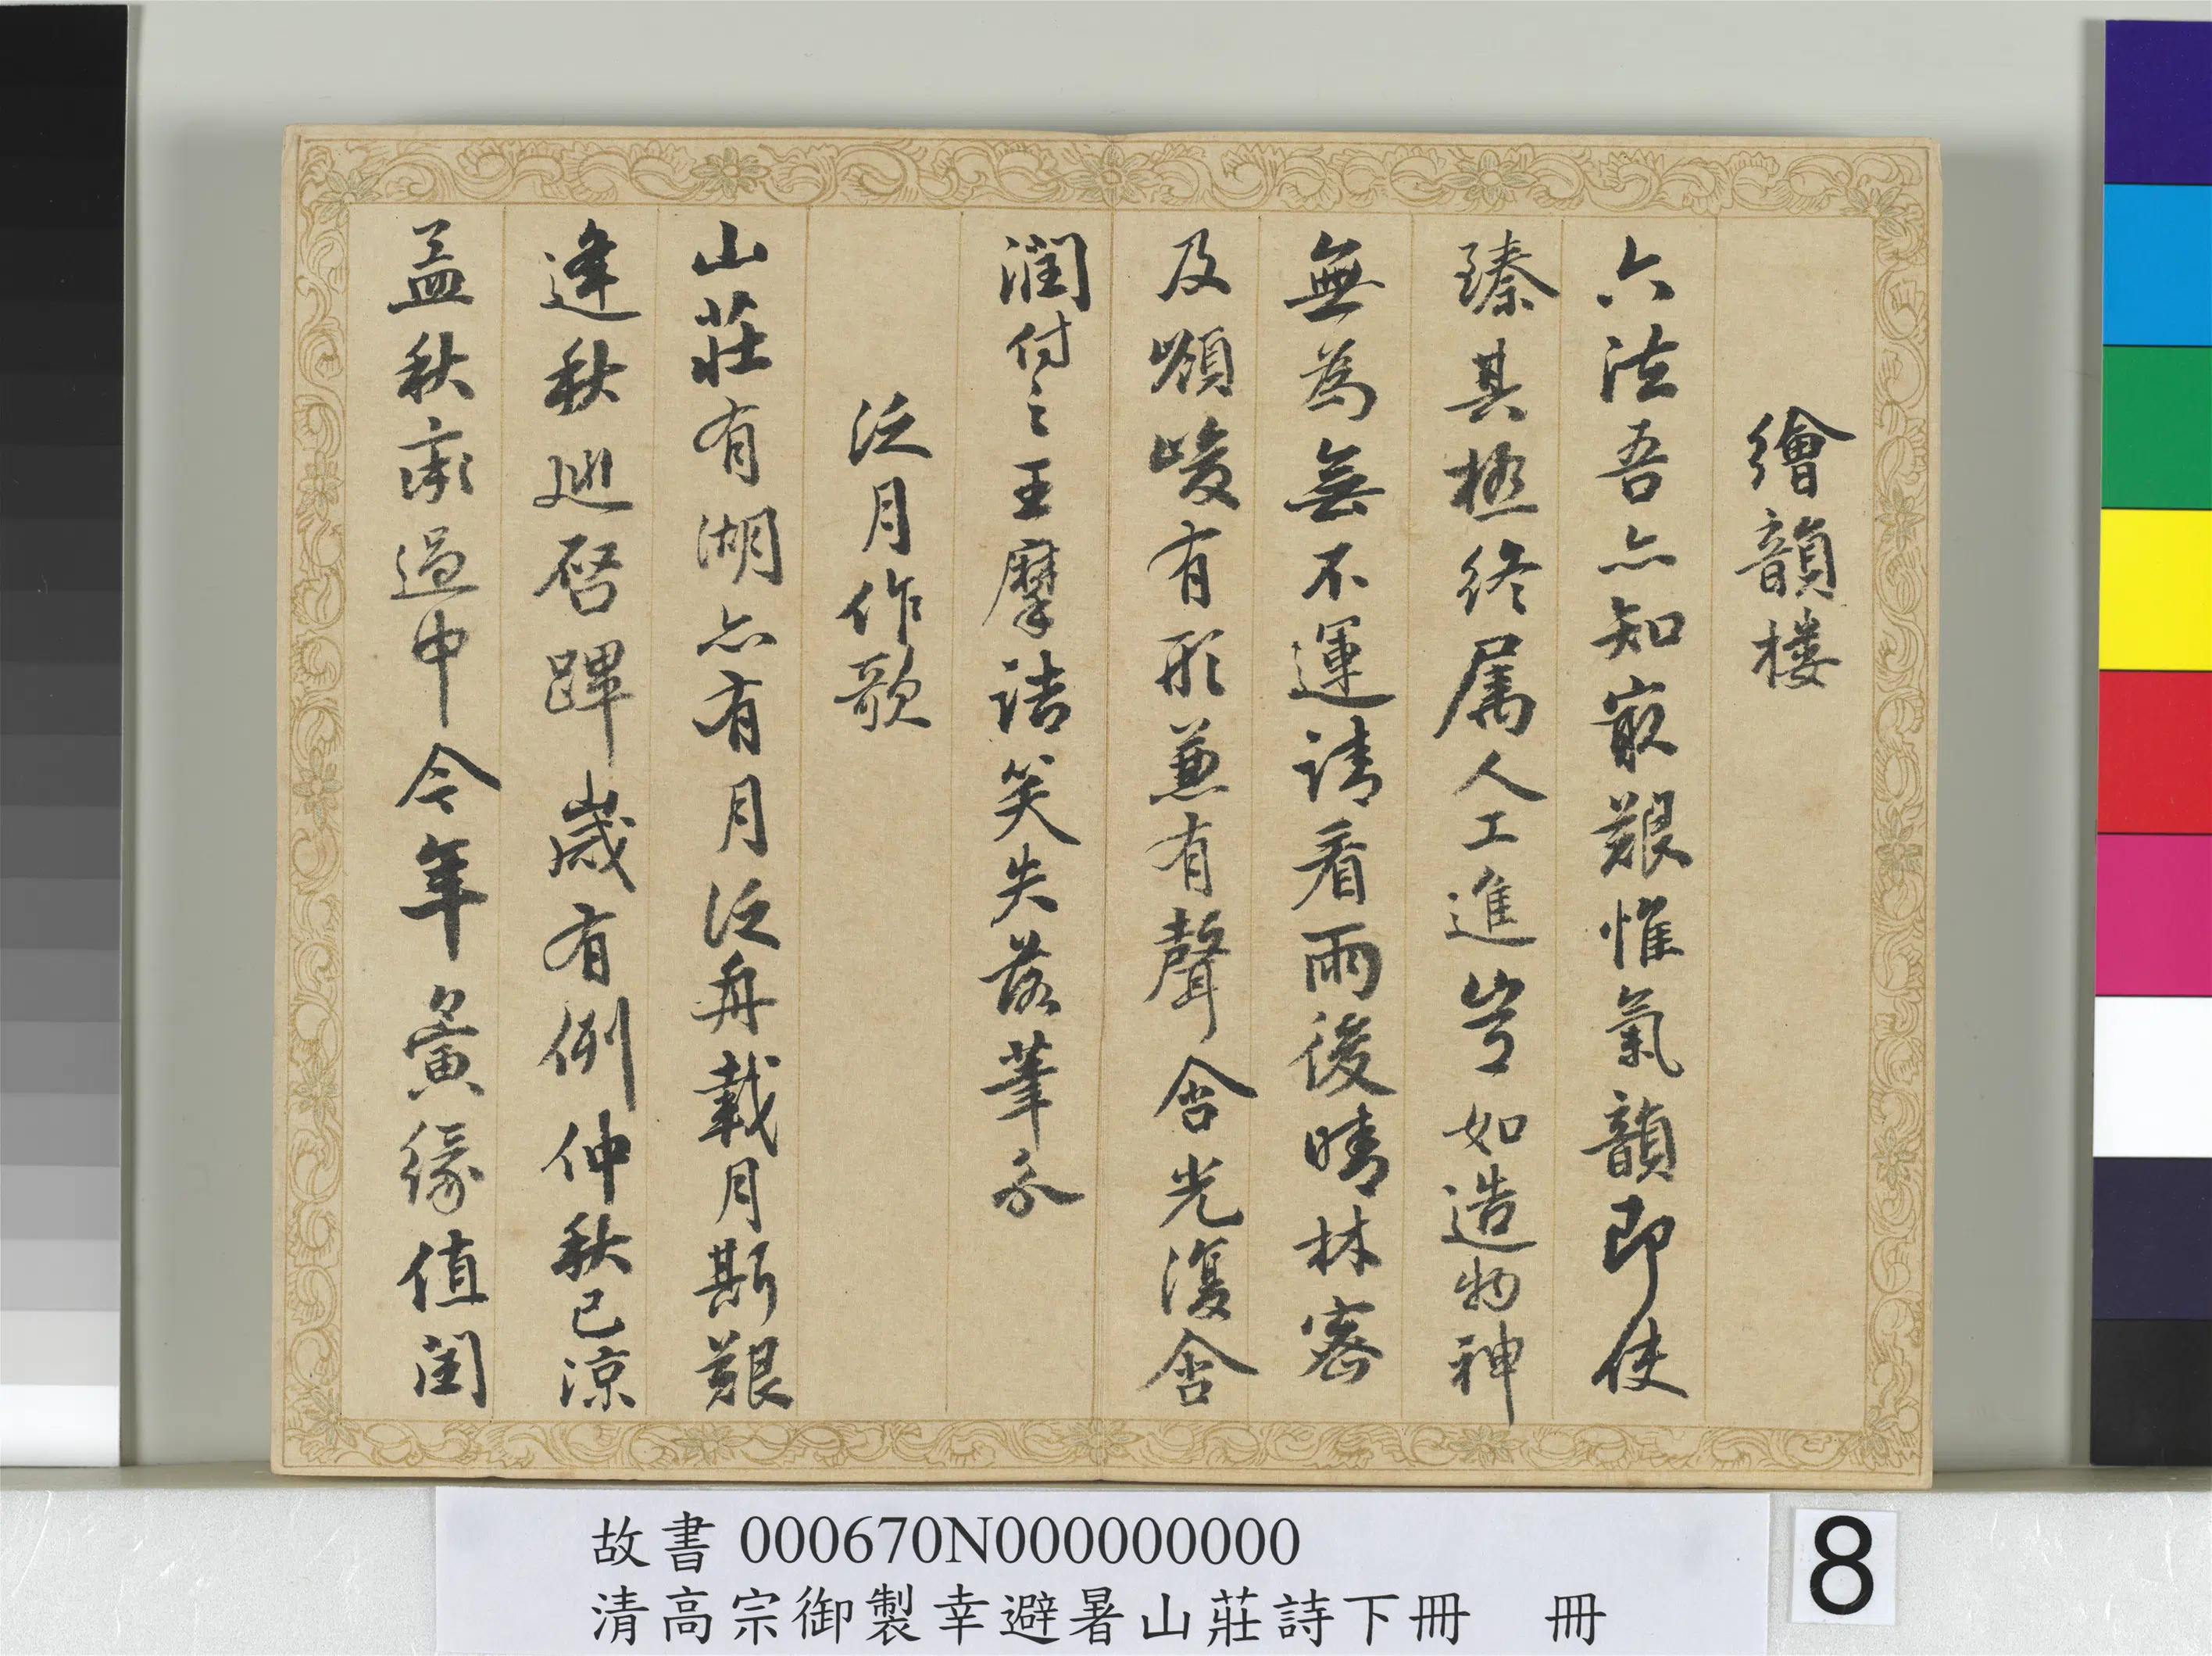 繪韻樓
六法吾亦知冣艱惟氣韻即使
臻其極終属人工進豈如造物神
無為無不運請看雨後晴林密
及峻有形兼有聲含光復含
潤付之王摩詰笑失落筆分
泛月作歌
山莊有湖亦有月泛舟載月斯艱
逢秋廵啓蹕歲有例仲秋已涼
孟秋過中今年夤緣值閏
故書 000670N000000000
清高宗御製幸避暑山莊詩下冊 冊
8